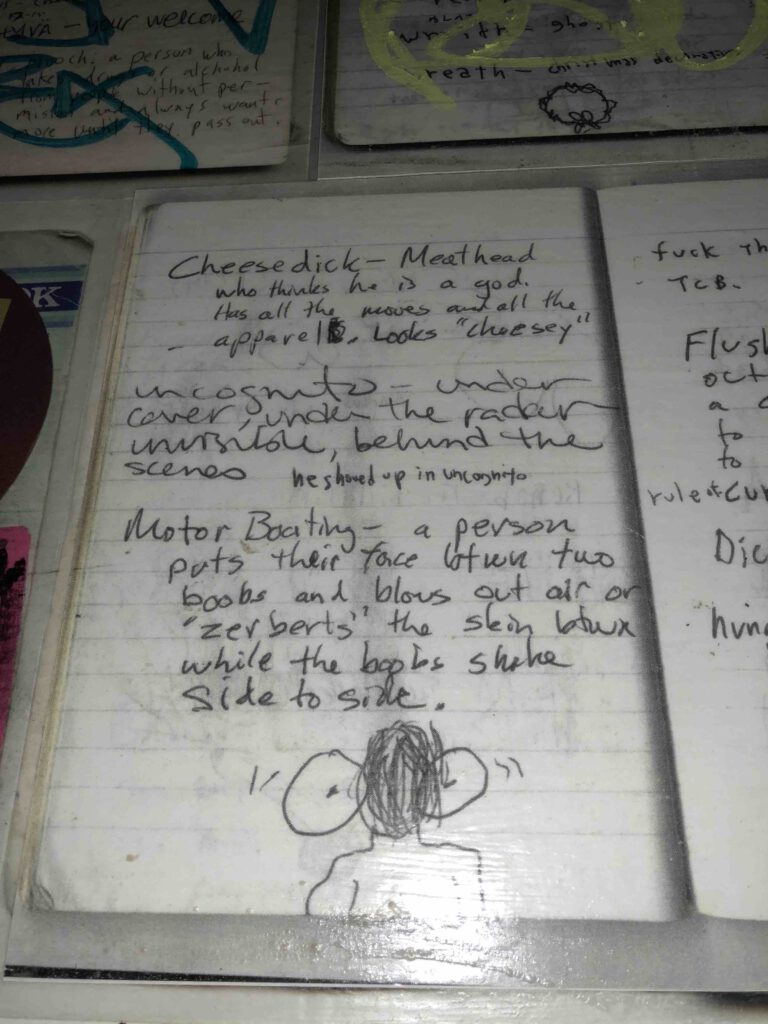 your welcome
a person who
alcohol
without per-
and always wants
more until they pass out.
ghost
christmas decoration
OK
Cheesedick - Meathead
who thinks he is a god.
Has all the moves and all the
apparel. Looks "cheesey"
uncognito - under
cover, under the radar
invisible, behind the
scenes he showed up in uncognito
Motor Boating - a person
puts their face btwn two
boobs and blows out air or
"zerberts" the skin btwx
while the boobs shake
side to side.
fuck Th
TCB.
Flush
oct
a
to
to
rule of Cu
Dic
hung